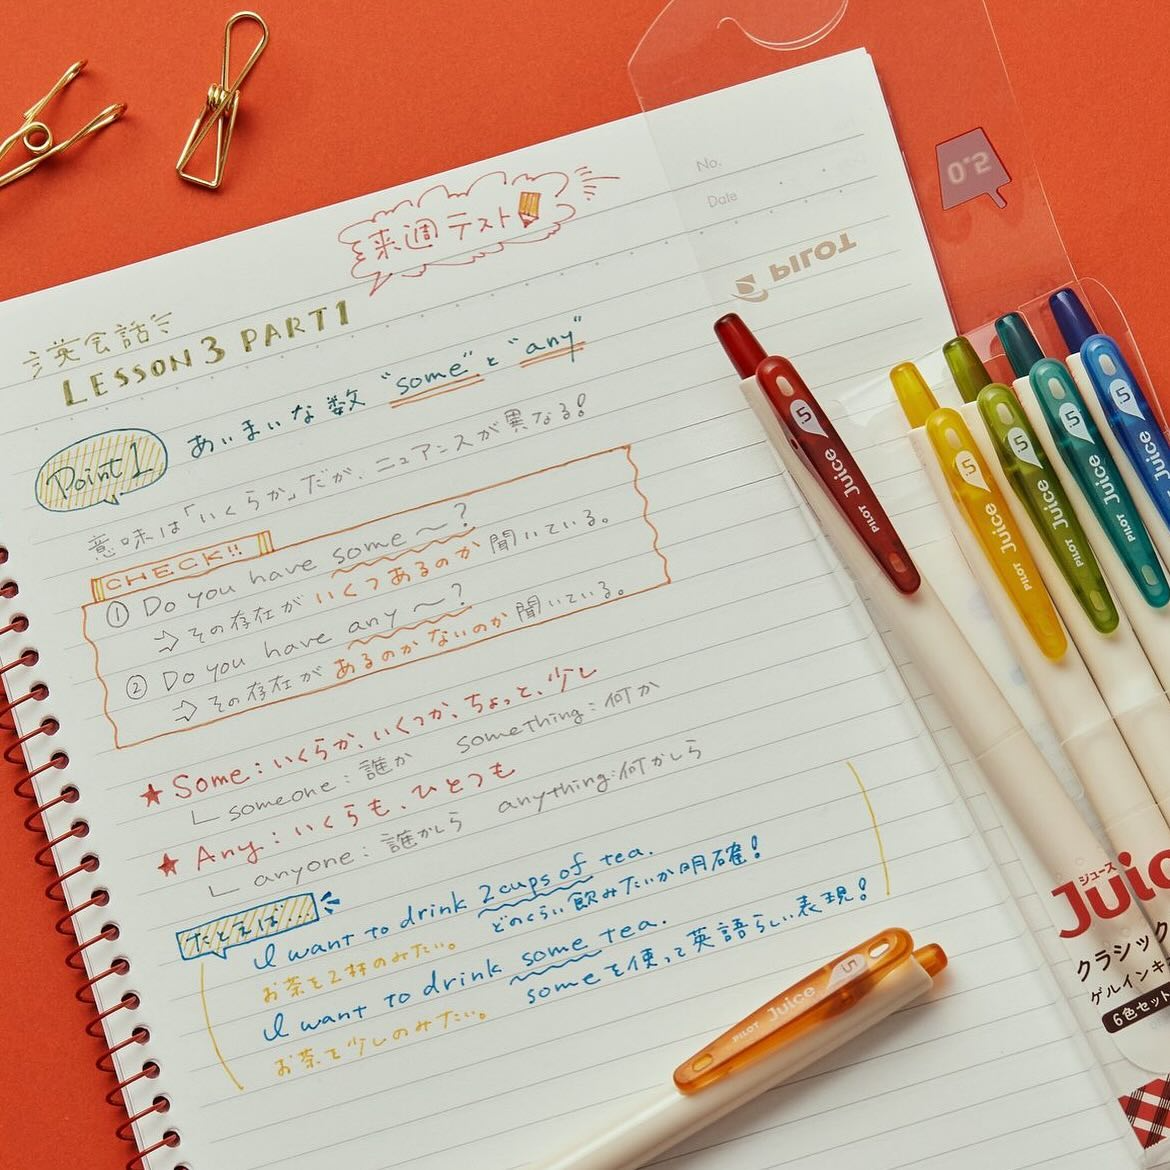 来週テスト
No.
Date
PILOT
0.5
英会話
LESSON 3 PART1
Point 1
あいまいな数 "some" と "any"
意味は「いくらか」だが、ニュアンスが異なる!
CHECK!!
① Do you have some 〜?
⇨ その存在がいくつあるのか聞いている。
② Do you have any 〜?
⇨ その存在があるのかないのか聞いている。
★ Some: いくらか、いくつか、ちょっと、少し
someone: 誰か something: 何か
★ Any: いくらも、ひとつも
anyone: 誰かしら anything: 何かしら
たとえば…
I want to drink 2 cups of tea.
お茶を2杯のみたい。 どのくらい飲みたいか明確!
I want to drink some tea.
お茶を少しのみたい。 someを使って英語らしい表現!
PILOT Juice .5
PILOT Juice .5
PILOT Juice .5
PILOT Juice .5
Juice .5
PILOT Juice .5
ジュース
Juic
クラシック
ゲルインキ
6色セット